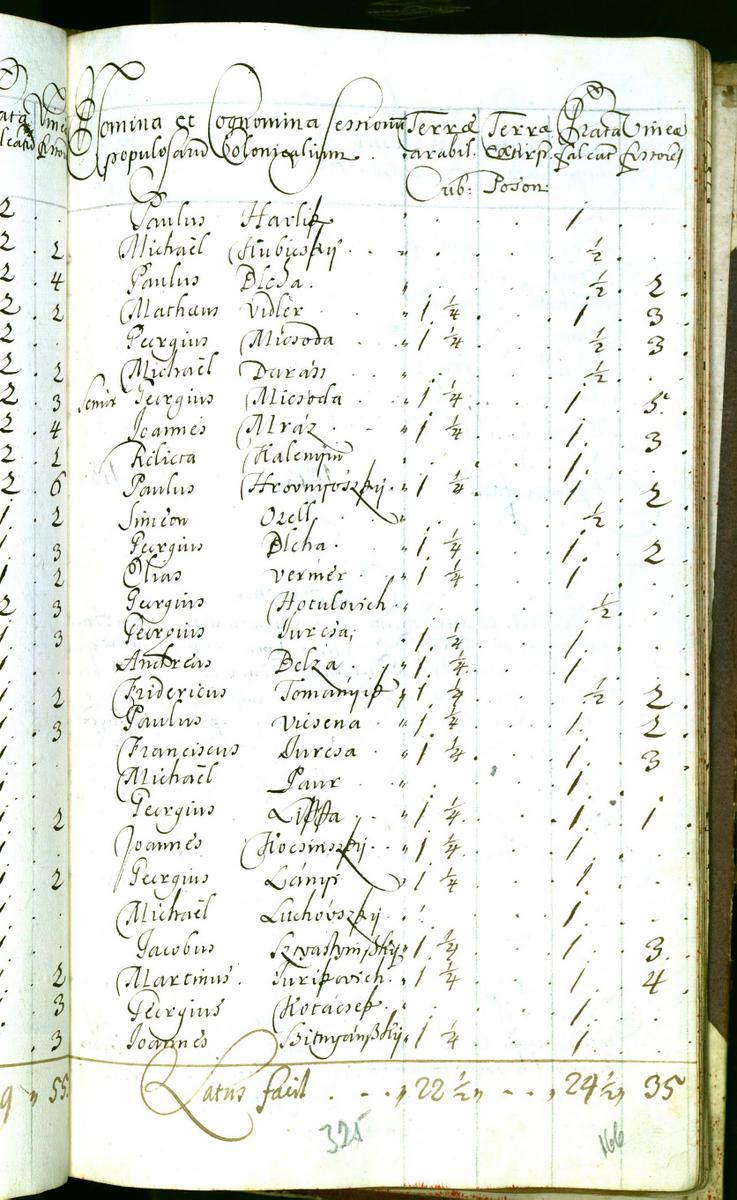 Nomina et Cognomina Sessionum Terræ Terra Prata Vineæ
populosarum Colonicalium. arabil. extirp. falcat. fossores
Cub: Poson:
Paulus Havlik 1
Michaël Hubicskij ½
Paulus Dleha ½ 2
Mathæus Vidler 1 ¼ 1 3
Georgius Micsoda 1 ¼ ½ 3
Michaël Daráss ½
Senior Georgius Micsoda 1 ¼ 1 5
Joannes Mráz 1 ¼ 1 3
Relicta 1
Paulus 1 ¼ 1 2
Simeon Ozell ½
Georgius Dleha 1 ¼ 1 2
Elias Vermer 1 ¼ 1
Georgius Hotulovich ½
Georgius Jurcsa 1 ¼ 1
Andreas Delza 1 ¼ 1
Fridericus Tomanyik 1 ¼ ½ 2
Paulus Vicsena 1 ¼ 1 2
Franciscus Jurcsa 1 ¼ 1 3
Michaël Paur 1
Georgius Lippa 1 ¼ 1 1
Joannes Kocsinszkij 1 ¼ 1
Georgius Lányi 1 ¼ 1
Michaël Luchovszkij 1
Jacobus 1 ¼ 1 3
Martinus Jurikovich 1 ¼ 1 4
Georgius Kotácsek 1
Joannes 1 ¼ 1
Latus facit 22 ½ 24 ½ 35
325 166